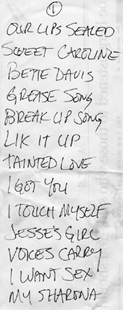 1
OUR LIPS SEALED
SWEET CAROLINE
BETTE DAVIS
GREASE SONG
BREAK UP SONG
LIK IT UP
TAINTED LOVE
I GOT YOU
I TOUCH MYSELF
JESSE'S GIRL
VOICES CARRY
I WANT SEX
MY SHARONA